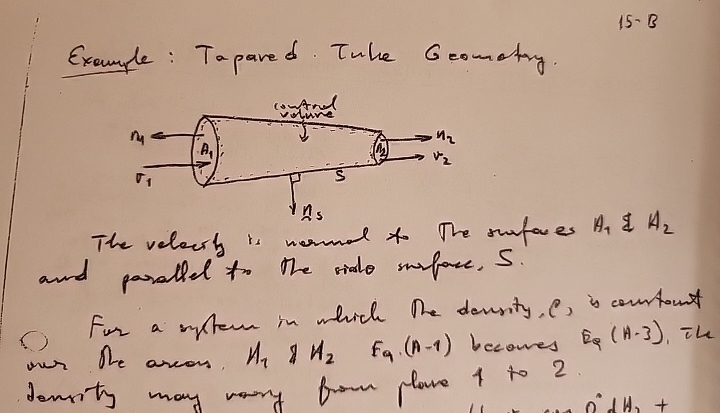 15-B
Example : Tapared Tube Geometry.
control
volume
n1 A1 A2 n2
v1 v2
S
ns
The velocity is normal to The surfaces A1 & A2
and parallel to The side surface, S.
For a system in which The density, ρ, is constant
over The areas A1 & A2 Eq.(A-1) becomes Eq (A-3). The
density may vary from plane 1 to 2.